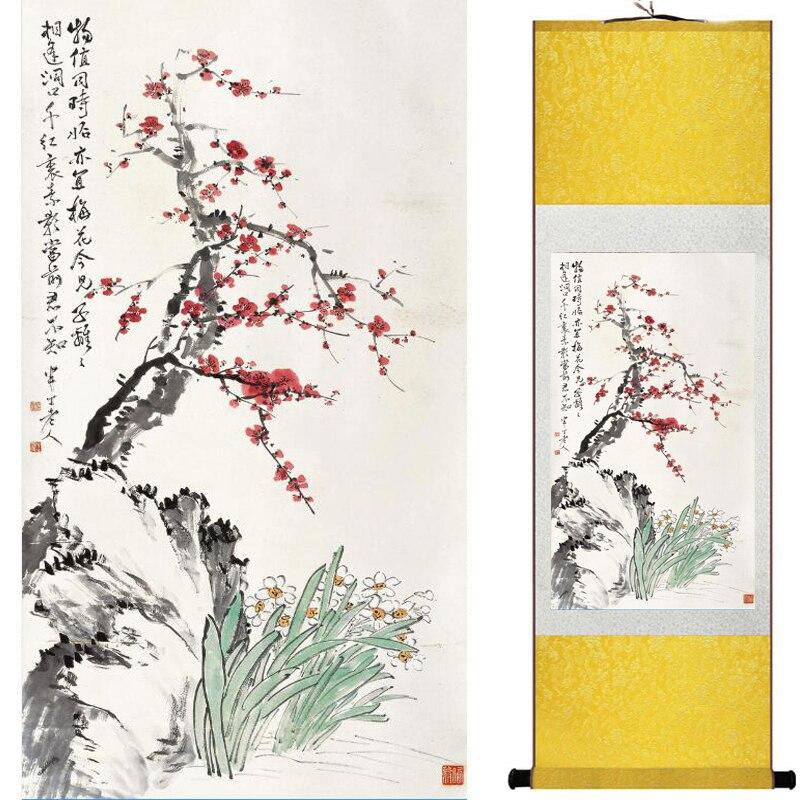 物值同時恰亦宜梅花今見子離〻
相逢洞口千红裏素影當前君不知
半丁老人